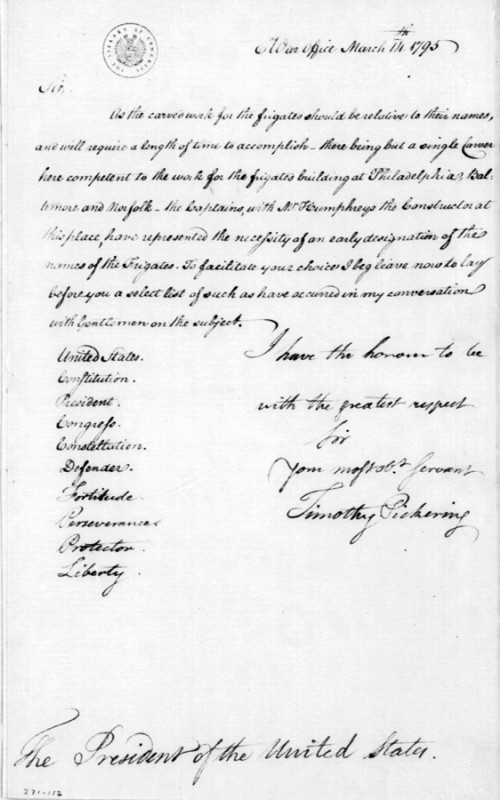 THE LIBRARY OF CONGRESS
War Office March 14th 1795
Sir,
As the carved work for the frigates should be relative to their names,
and will require a length of time to accomplish – there being but a single Carver
here competent to the work for the frigates building at Philadelphia, Bal-
timore and Norfolk – the Captains, with Mr Humphreys the Constructor at
this place, have represented the necessity of an early designation of the
names of the Frigates. To facilitate your choice I beg leave now to lay
before you a select list of such as have occurred in my conversation
with Gentlemen on the subject.
United States.
Constitution.
President.
Congress.
Constellation.
Defender.
Fortitude.
Perseverance.
Protector.
Liberty.
I have the honour to be
with the greatest respect
Sir
Your most obt Servant
Timothy Pickering
The President of the United States.
271-112